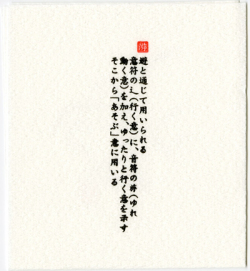 遊と通じて用いられる
意符の辶(行く意)に、音符の斿(ゆれ
動く意)を加え、ゆったりと行く意を示す
そこから「あそぶ」意に用いる